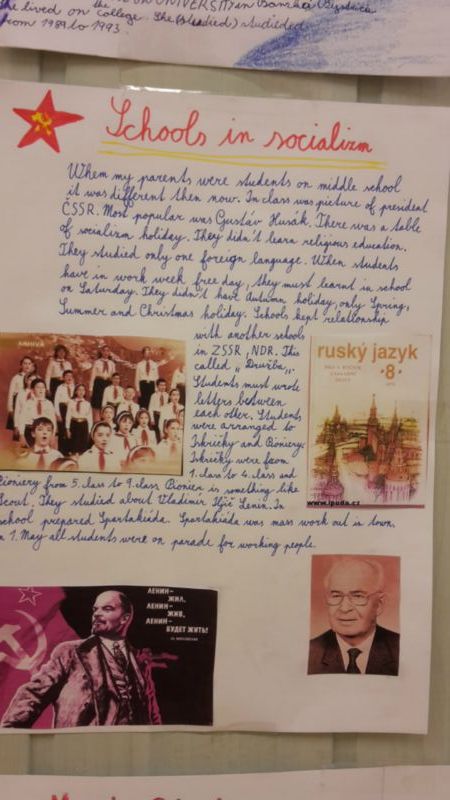 UNIVERSITY in Banská Bystrica
she lived on college. She (studied) studieded
from 1989 to 1993.
Schools in socializm
When my parents were students on middle school
it was different then now. In class was picture of president
ČSSR. Most popular was Gustáv Husák. There was a table
of socializm holiday. They didn't learn religious education.
They studied only one foreign language. When students
have in work week free day, they must learnt in school
on Saturday. They didn't have Autumn holiday, only Spring,
Summer and Christmas holiday. Schools kept relationship
with another schools
in ZSSR, NDR. This
called „Družba„.
Students must wrote
letters between
each other. Students
were arranged to
Iskričky and Pioniery.
Iskričky were from
1. class to 4. class and
Pioniery from 5. class to 9. class. Pionier is something like
Scout. They studied about Vladimír Iljič Lenin. In
school prepared Spartakiáda. Spartakiáda was mass work out in town.
n 1. May all students were on parade for working people.
ARHIVA
ruský jazyk
·8·
www.ipuda.cz
ЛЕНИН—
ЖИЛ,
ЛЕНИН—
ЖИВ,
ЛЕНИН—
БУДЕТ ЖИТЬ!